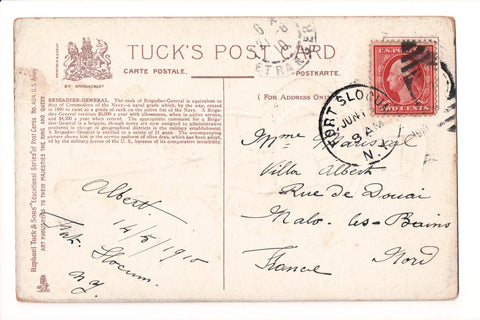 TUCK'S POST CARD
CARTE POSTALE. POSTKARTE.
BY APPOINTMENT
(FOR ADDRESS ONLY
BRIGADIER-GENERAL. The rank of Brigadier-General is equivalent to
that of Commodore of the Navy—a naval grade which, by the way, ceased
in 1899 to exist as a grade of rank on the active list of the Navy. A Brigadier-
General receives $6,000 a year with allowances, when in active service,
and $4,500 a year when retired. The appropriate command for a Brigadier-
General is a brigade, though many are now assigned to administrative
positions in charge of geographical districts in the military establishment.
A Brigadier-General in command is a salary of 11 guns. The accompanying
the military forces of the U.S., because of its comparative invisibility.
Raphael Tuck & Sons' "Educational Series" of Post Cards No. 404. U.S. Army
ART PUBLISHERS TO THEIR MAJESTIES THE KING AND QUEEN.
ETRANGER
U.S. POSTAGE
TWO CENTS
FORT SLOCUM
JUN
8 AM
N.Y.
Mme
Villa Albert
Rue de Douai
Malo-les-Bains
Nord
France
Albert
14/5/1910
Slocum
N.Y.